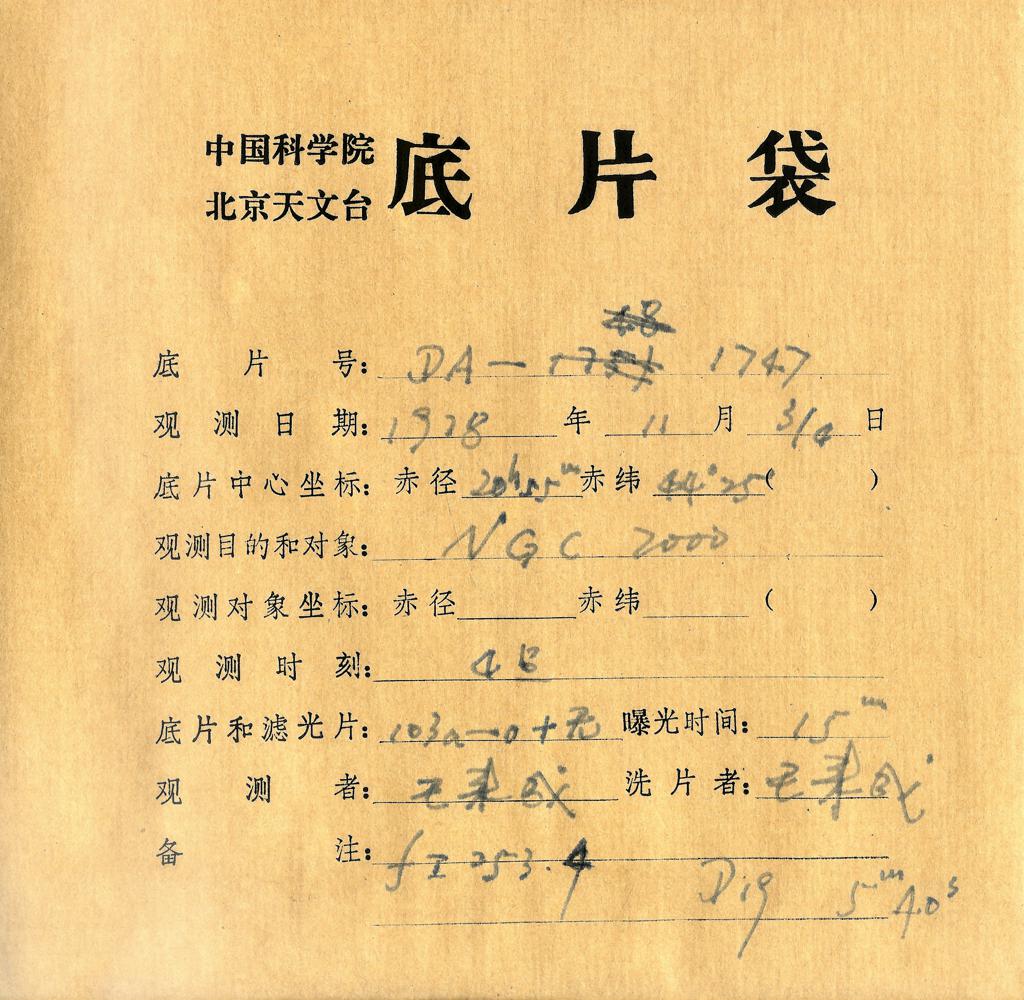 中国科学院
北京天文台 底片袋
底片号: DA-1747
观测日期: 1978 年 11 月 3/4 日
底片中心坐标: 赤径 20h55m 赤纬 44°25′( )
观测目的和对象: NGC 7000
观测对象坐标: 赤径 赤纬 ( )
观测时刻:
底片和滤光片: 103a-O+无 曝光时间: 15m
观测者: 洗片者:
备注: f=253.4
5m 4.0s